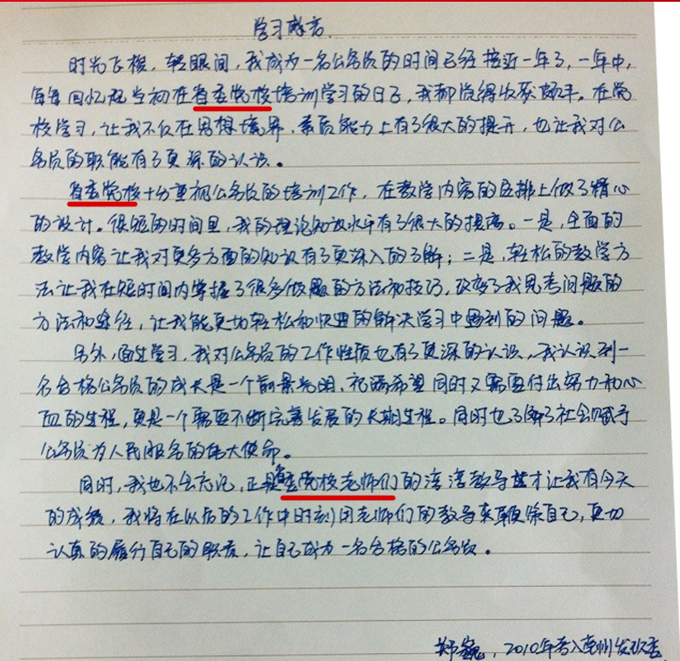 学习感言
时光飞梭，转眼间，我成为一名公务员的时间已经接近一年了，一年中，
每每回忆起当初在省委党校培训学习的日子，我都觉得收获颇丰。在党
校学习，让我不仅在思想境界，素质能力上有了很大的提升，也让我对公
务员的职能有了更深的认识。
省委党校十分重视公务员的培训工作，在教学内容的安排上做了精心
的设计。很短的时间里，我的理论知识水平有了很大的提高。一是，全面的
教学内容让我对更多方面的知识有了更深入的了解；二是，轻松的教学方
法让我在短时间内掌握了很多做题的方法和技巧，改变了我思考问题的
方法和途径，让我能更加轻松和快速的解决学习中遇到的问题。
另外，通过学习，我对公务员的工作性质也有了更深的认识，我认识到一
名合格公务员的成长是一个前景光明，充满希望同时又需要付出努力和心
血的过程，更是一个需要不断完善发展的长期过程。同时也了解了社会赋予
公务员为人民服务的伟大使命。
同时，我也不会忘记，正是省委党校老师们的谆谆教导才让我有今天
的成绩，我将在以后的工作中时刻用老师们的教导来鞭策自己，更加
认真的履行自己的职责，让自己成为一名合格的公务员。
郑巍，2010年考入亳州发改委